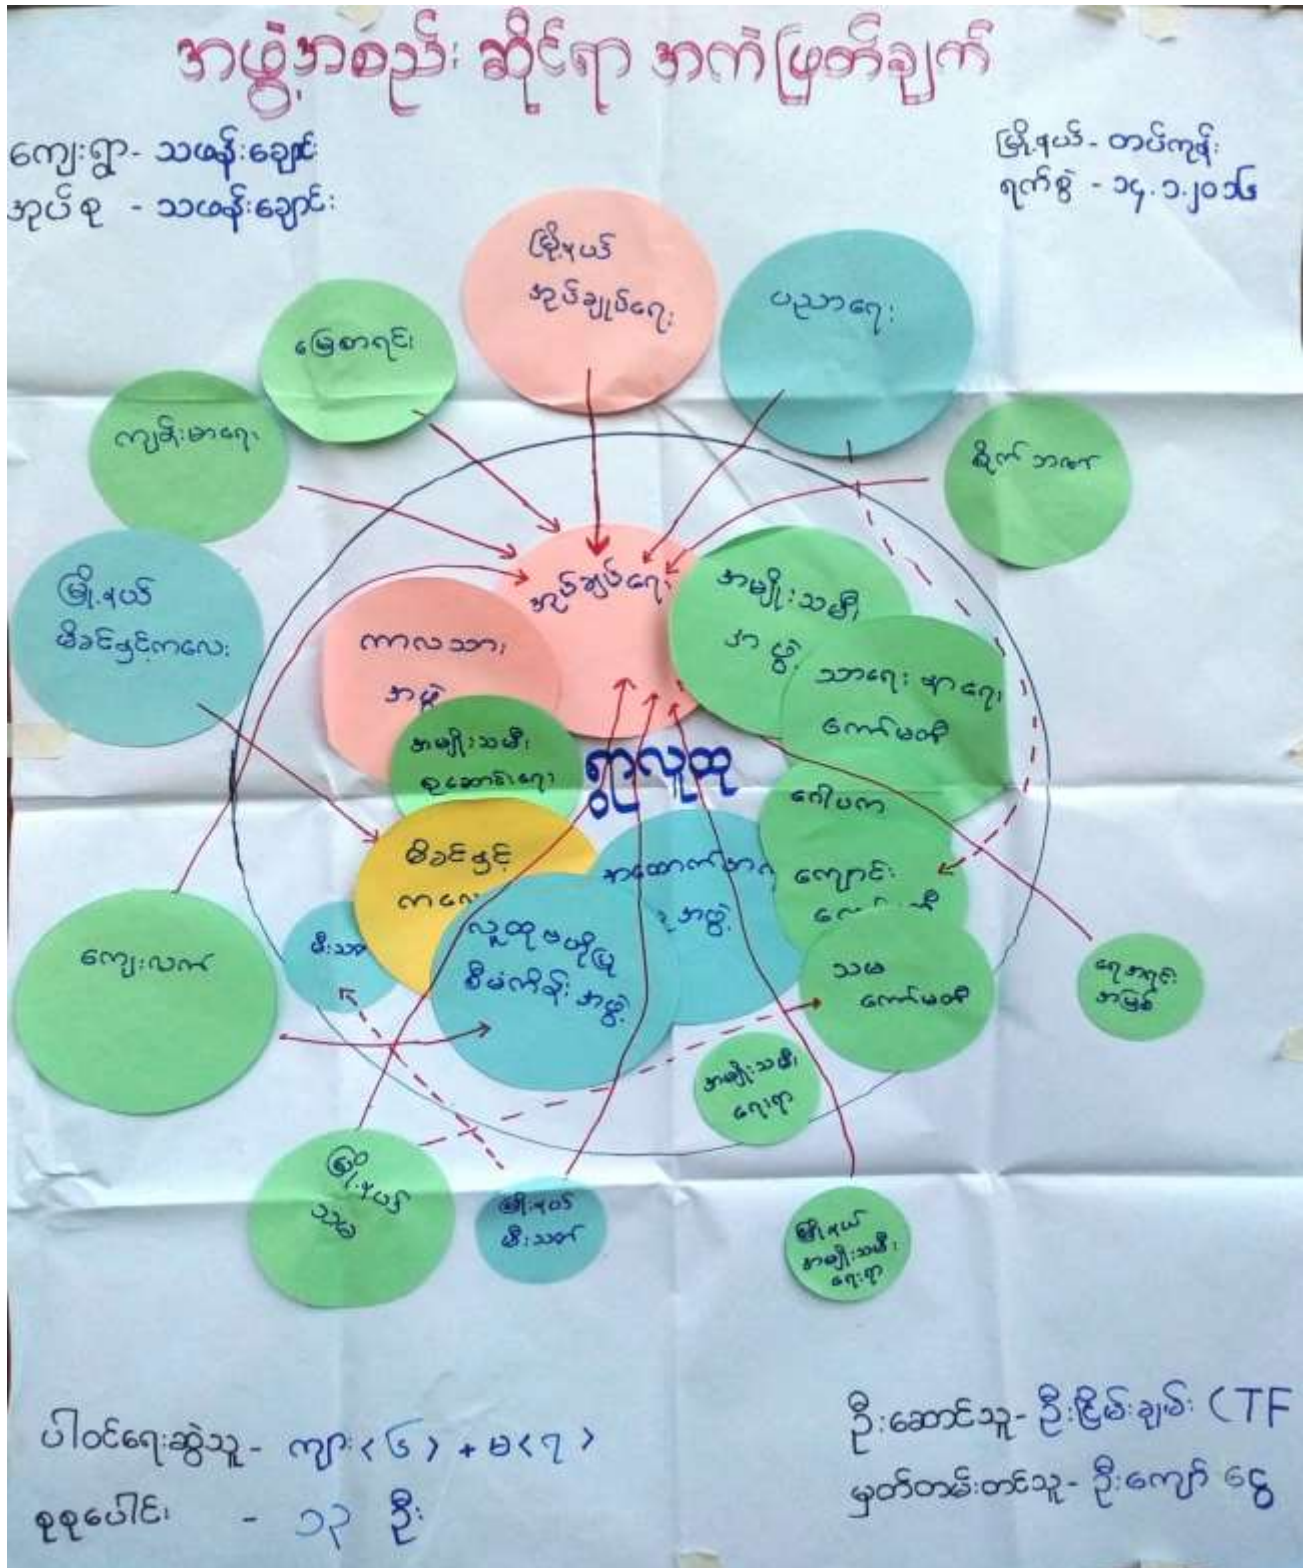 အဖွဲ့အစည်း ဆိုင်ရာ အကဲဖြတ်ချက်
ကျေးရွာ - သဖန်းချောင်း
အုပ်စု - သဖန်းချောင်း
မြို့နယ် - တပ်ကုန်း
ရက်စွဲ - ၁၄.၁.၂၀၁၆
မြို့နယ်
အုပ်ချုပ်ရေး
ပညာရေး
မြေစာရင်း
ကျန်းမာရေး
စိုက်
မြို့နယ်
မိခင်နှင့်ကလေး
အုပ်ချုပ်ရေး
အမျိုးသမီး
အဖွဲ့
ကာလသား
အဖွဲ့
သာရေး နာရေး
ကော်မတီ
အမျိုးသမီး
စုဆောင်းရေး
ရွာလူထု
ဂေါပက
မိခင်နှင့်
ကလေး
ကျောင်း
အဖွဲ့
လူထုဗဟိုပြု
စီမံကိန်း အဖွဲ့
မီးသတ်
သမ
ကော်မတီ
ကျေးလက်
ရေအရင်း
အမြစ်
အမျိုးသမီး
ရေးရာ
မြို့နယ်
သမ
မြို့နယ်
မီးသတ်
မြို့နယ်
အမျိုးသမီး
ရေးရာ
ပါဝင်ရေးဆွဲသူ - ကျား<၆> + မ<၇>
စုစုပေါင်း - ၁၃ ဦး
ဦးဆောင်သူ - ဦးငြိမ်းချမ်း (TF
မှတ်တမ်းတင်သူ - ဦးကျော် ငွေ